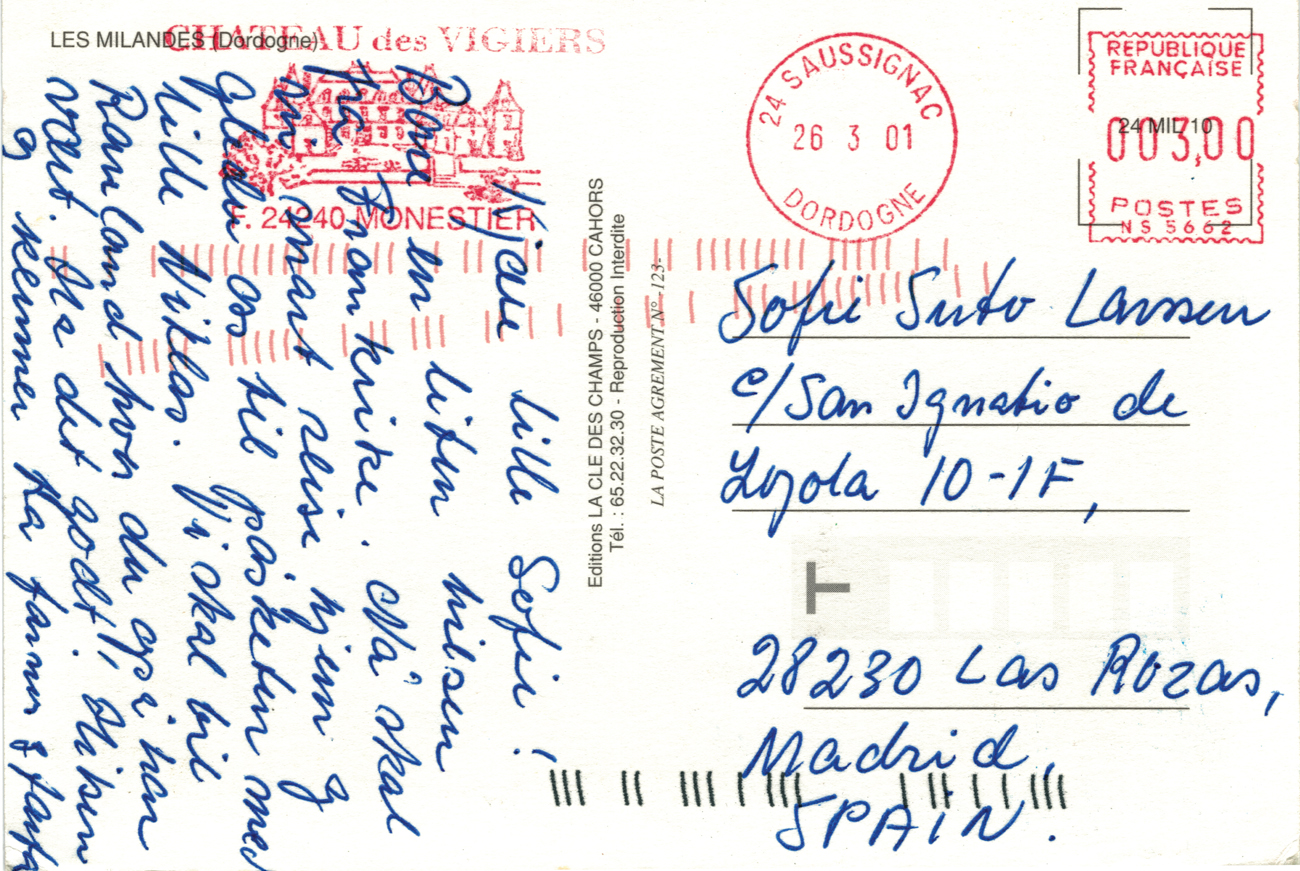 LES MILANDES (Dordogne)
CHATEAU des VIGIERS
F. 24240 MONESTIER
Kjære lille Sofie!
Bare en liten hilsen
fra Frankrike. Nå skal
vi snart reise hjem og
gleder oss til påsketuren med
lille Niklas. Vi skal til
Rauland hvor du også har
vært. Ha det godt!! Hilsen
og klemmer fra farmor & farfar
Editions LA CLE DES CHAMPS - 46000 CAHORS
Tél. : 65.22.32.30 - Reproduction Interdite
LA POSTE AGREMENT N° -123-
24 SAUSSIGNAC
26 3 01
DORDOGNE
REPUBLIQUE
FRANÇAISE
24 MIL 10
003,00
POSTES
NS 5662
Sofie Suto Larssen
c/San Ignatio de
Loyola 10-1F,
T
28230 Las Rozas,
Madrid,
SPAIN.